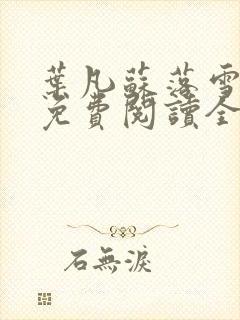 葉凡蘇落雪
免費閱讀全
石無淚